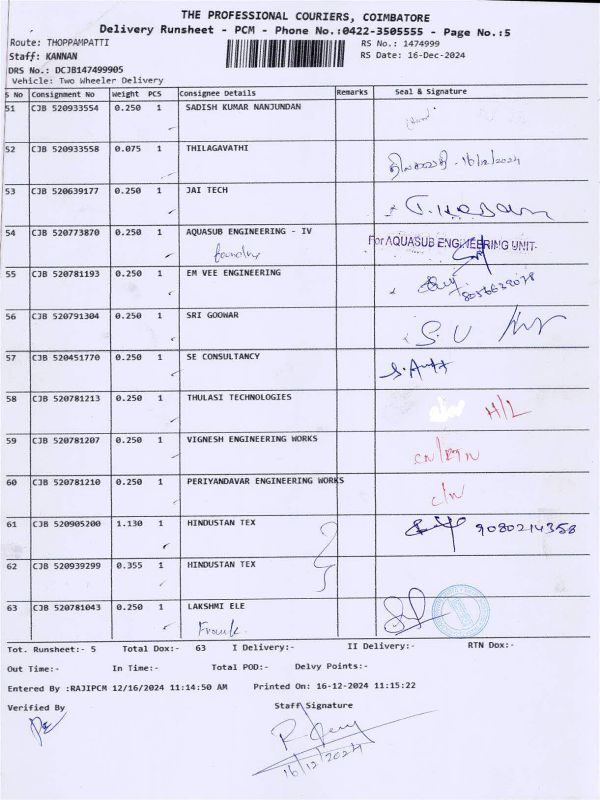 THE PROFESSIONAL COURIERS, COIMBATORE
Delivery Runsheet - PCM - Phone No.:0422-3505555 - Page No.:5
Route: THOPPAMPATTI RS No.: 1474999
Staff: KANNAN RS Date: 16-Dec-2024
DRS No.: DCJB147499905
Vehicle: Two Wheeler Delivery
S No Consignment No Weight PCS Consignee Details Remarks Seal & Signature
51 CJB 520933554 0.250 1 SADISH KUMAR NANJUNDAN
52 CJB 520933558 0.075 1 THILAGAVATHI திலகவதி - 16/12/2024
53 CJB 520639177 0.250 1 JAI TECH
54 CJB 520773870 0.250 1 AQUASUB ENGINEERING - IV For AQUASUB ENGINEERING UNIT-
foundry
55 CJB 520781193 0.250 1 EM VEE ENGINEERING
56 CJB 520791304 0.250 1 SRI GOOWAR
57 CJB 520451770 0.250 1 SE CONSULTANCY
58 CJB 520781213 0.250 1 THULASI TECHNOLOGIES H/L
59 CJB 520781207 0.250 1 VIGNESH ENGINEERING WORKS
60 CJB 520781210 0.250 1 PERIYANDAVAR ENGINEERING WORKS
61 CJB 520905200 1.130 1 HINDUSTAN TEX 9080214358
62 CJB 520939299 0.355 1 HINDUSTAN TEX
63 CJB 520781043 0.250 1 LAKSHMI ELE
Tot. Runsheet:- 5 Total Dox:- 63 I Delivery:- II Delivery:- RTN Dox:-
Out Time:- In Time:- Total POD:- Delvy Points:-
Entered By :RAJIPCM 12/16/2024 11:14:50 AM Printed On: 16-12-2024 11:15:22
Verified By Staff Signature
16/12/2024